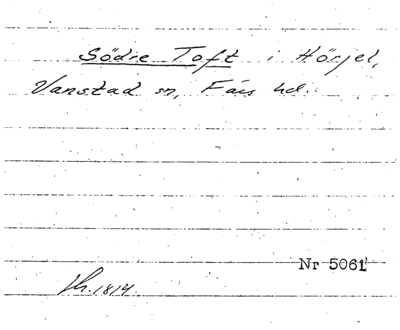 Södre Toft i Hörjel,
Vanstad sn, Färs hd.
Nr 5061
1814.